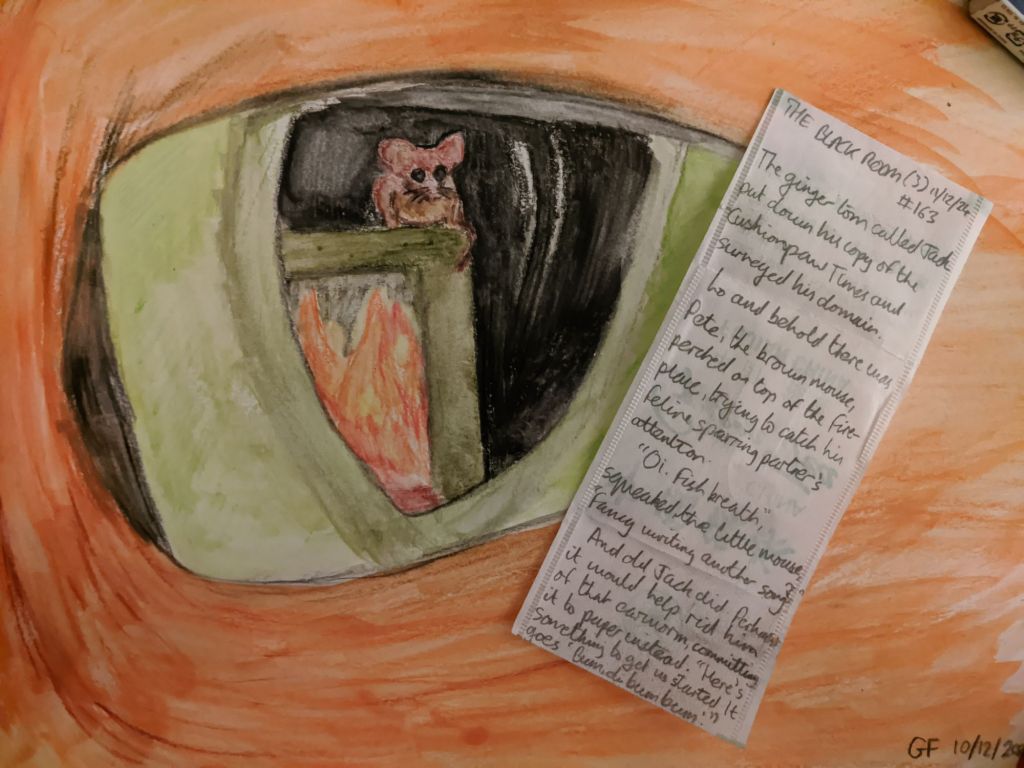 THE BLACK ROOM (3) 11/12/24
#163
The ginger tom called Jack
put down his copy of the
Cushionpaw Times and
surveyed his domain.
Lo and behold there was
Pete, the brown mouse,
perched on top of the fire-
place, trying to catch his
feline sparring partner's
attention.
"Oi. Fish breath,"
squeaked the little mouse,
"Fancy writing another song?"
And did Jack did. Perhaps
it would help rid him
of that earworm, committing
it to paper instead. "Here's
something to get us started. It
goes "Bumdi bum bum."
GF 10/12/20